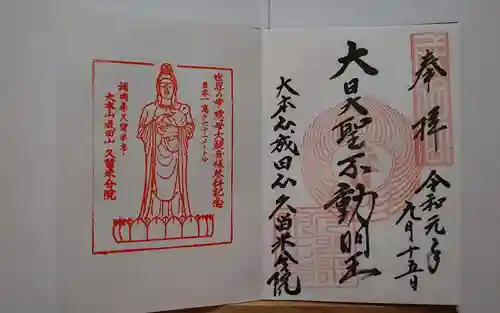 奉拝
令和元年
九月十五日
大日大聖不動明王
大本山成田山久留米分院
世界の母 救世慈母大観音様参拝記念
日本一高さ六十二メートル
福岡県久留米市
大本山成田山 久留米分院